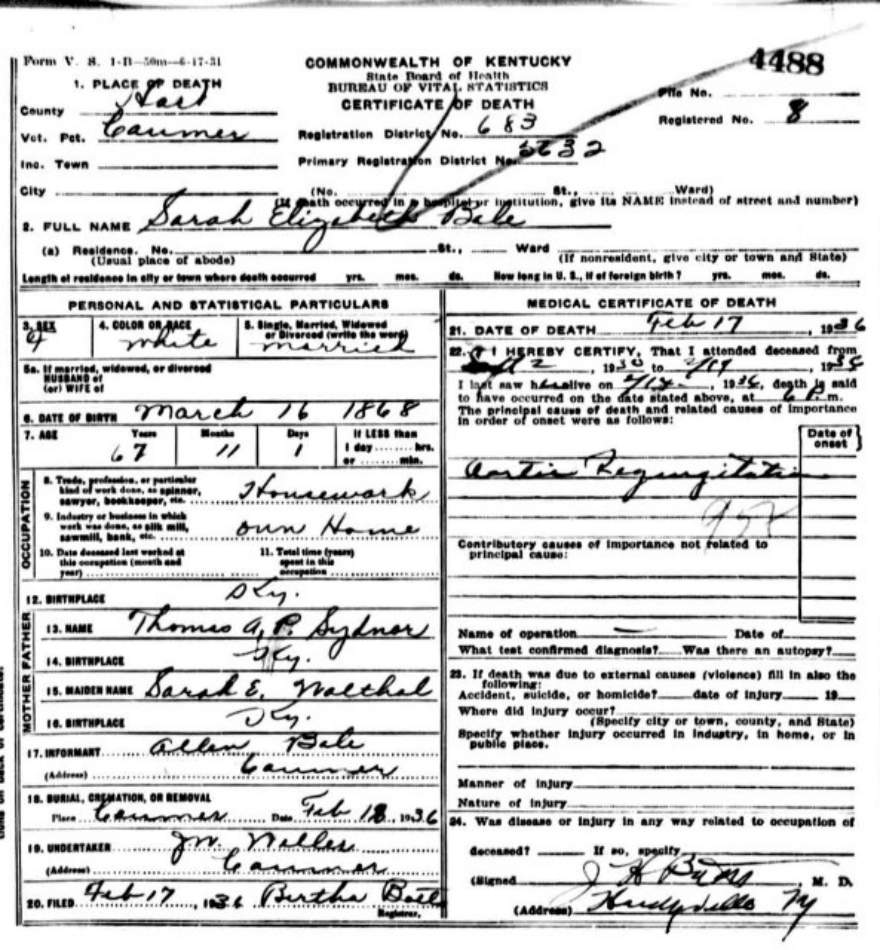 Form V. S. 1-B—50m—6-17-31
COMMONWEALTH OF KENTUCKY
State Board of Health
BUREAU OF VITAL STATISTICS
CERTIFICATE OF DEATH
4488
File No.
Registered No. 8
1. PLACE OF DEATH
County Hart
Vot. Pct. Canmer
Inc. Town
City
Registration District No. 683
Primary Registration District No.
(No. St., Ward)
(If death occurred in a hospital or institution, give its NAME instead of street and number)
2. FULL NAME Sarah Elizabeth Bale
(a) Residence. No. St., Ward
(Usual place of abode) (If nonresident, give city or town and State)
Length of residence in city or town where death occurred yrs. mos. ds. How long in U. S., if of foreign birth? yrs. mos. ds.
PERSONAL AND STATISTICAL PARTICULARS
3. SEX 4. COLOR OR RACE 5. Single, Married, Widowed
or Divorced (write the word)
white married
5a. If married, widowed, or divorced
HUSBAND of
(or) WIFE of
6. DATE OF BIRTH March 16 1868
7. AGE Years Months Days If LESS than
67 11 1 1 day ........ hrs.
or ........ min.
OCCUPATION
8. Trade, profession, or particular
kind of work done, as spinner,
sawyer, bookkeeper, etc. Housework
9. Industry or business in which
work was done, as silk mill,
sawmill, bank, etc. own Home
10. Date deceased last worked at
this occupation (month and
year)
11. Total time (years)
spent in this
occupation
12. BIRTHPLACE Ky.
FATHER
13. NAME Thomas A. P. Sydnor
14. BIRTHPLACE Ky.
MOTHER
15. MAIDEN NAME Sarah E. Walthal
16. BIRTHPLACE Ky.
17. INFORMANT Allen Bale
(Address) Canmer
18. BURIAL, CREMATION, OR REMOVAL
Place Canmer Date Feb 18, 1936
19. UNDERTAKER J.W.
(Address) Canmer
20. FILED Feb 17, 1936 Bertha
Registrar.
MEDICAL CERTIFICATE OF DEATH
21. DATE OF DEATH Feb 17, 1936
22. I HEREBY CERTIFY, That I attended deceased from
, 19 to , 1936
I last saw her alive on , 1936, death is said
to have occurred on the date stated above, at 6 P. m.
The principal cause of death and related causes of importance
in order of onset were as follows:
Date of
onset
Aortic Regurgitation
Contributory causes of importance not related to
principal cause:
Name of operation — Date of
What test confirmed diagnosis? Was there an autopsy?
23. If death was due to external causes (violence) fill in also the
following:
Accident, suicide, or homicide? date of injury 19
Where did injury occur?
(Specify city or town, county, and State)
Specify whether injury occurred in industry, in home, or in
public place.
Manner of injury
Nature of injury
24. Was disease or injury in any way related to occupation of
deceased? If so, specify
(Signed J H , M. D.
(Address) Hardyville Ky